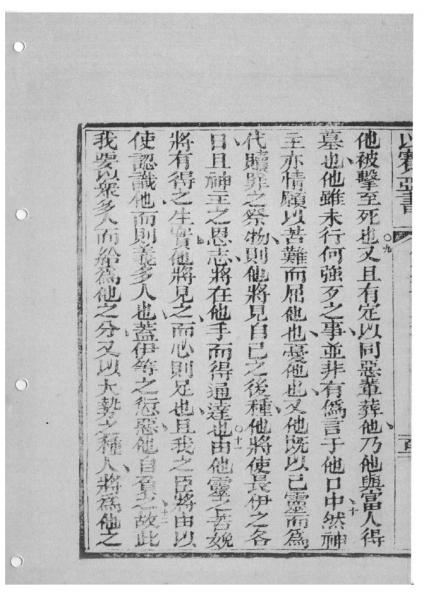 以賽亞書
他被擊至死也又且有定以同惡輩葬他乃他與富人得
墓也他雖未行何強歹之事並非有僞言于他口中然神
主亦情願以苦難而屈他也憂他也又他既以己靈而為
代贖罪之祭物則他將見自己之後種他將使長伊之各
日且神主之恩志將在他手而得通達也由他靈之苦娩
將有得之生實他將見之而心則足也且我之臣將由以
使認識他而則義多人也蓋伊等之愆惡他自負之故此
我要以衆多人而給為他之分又以大勢之種人將為他之